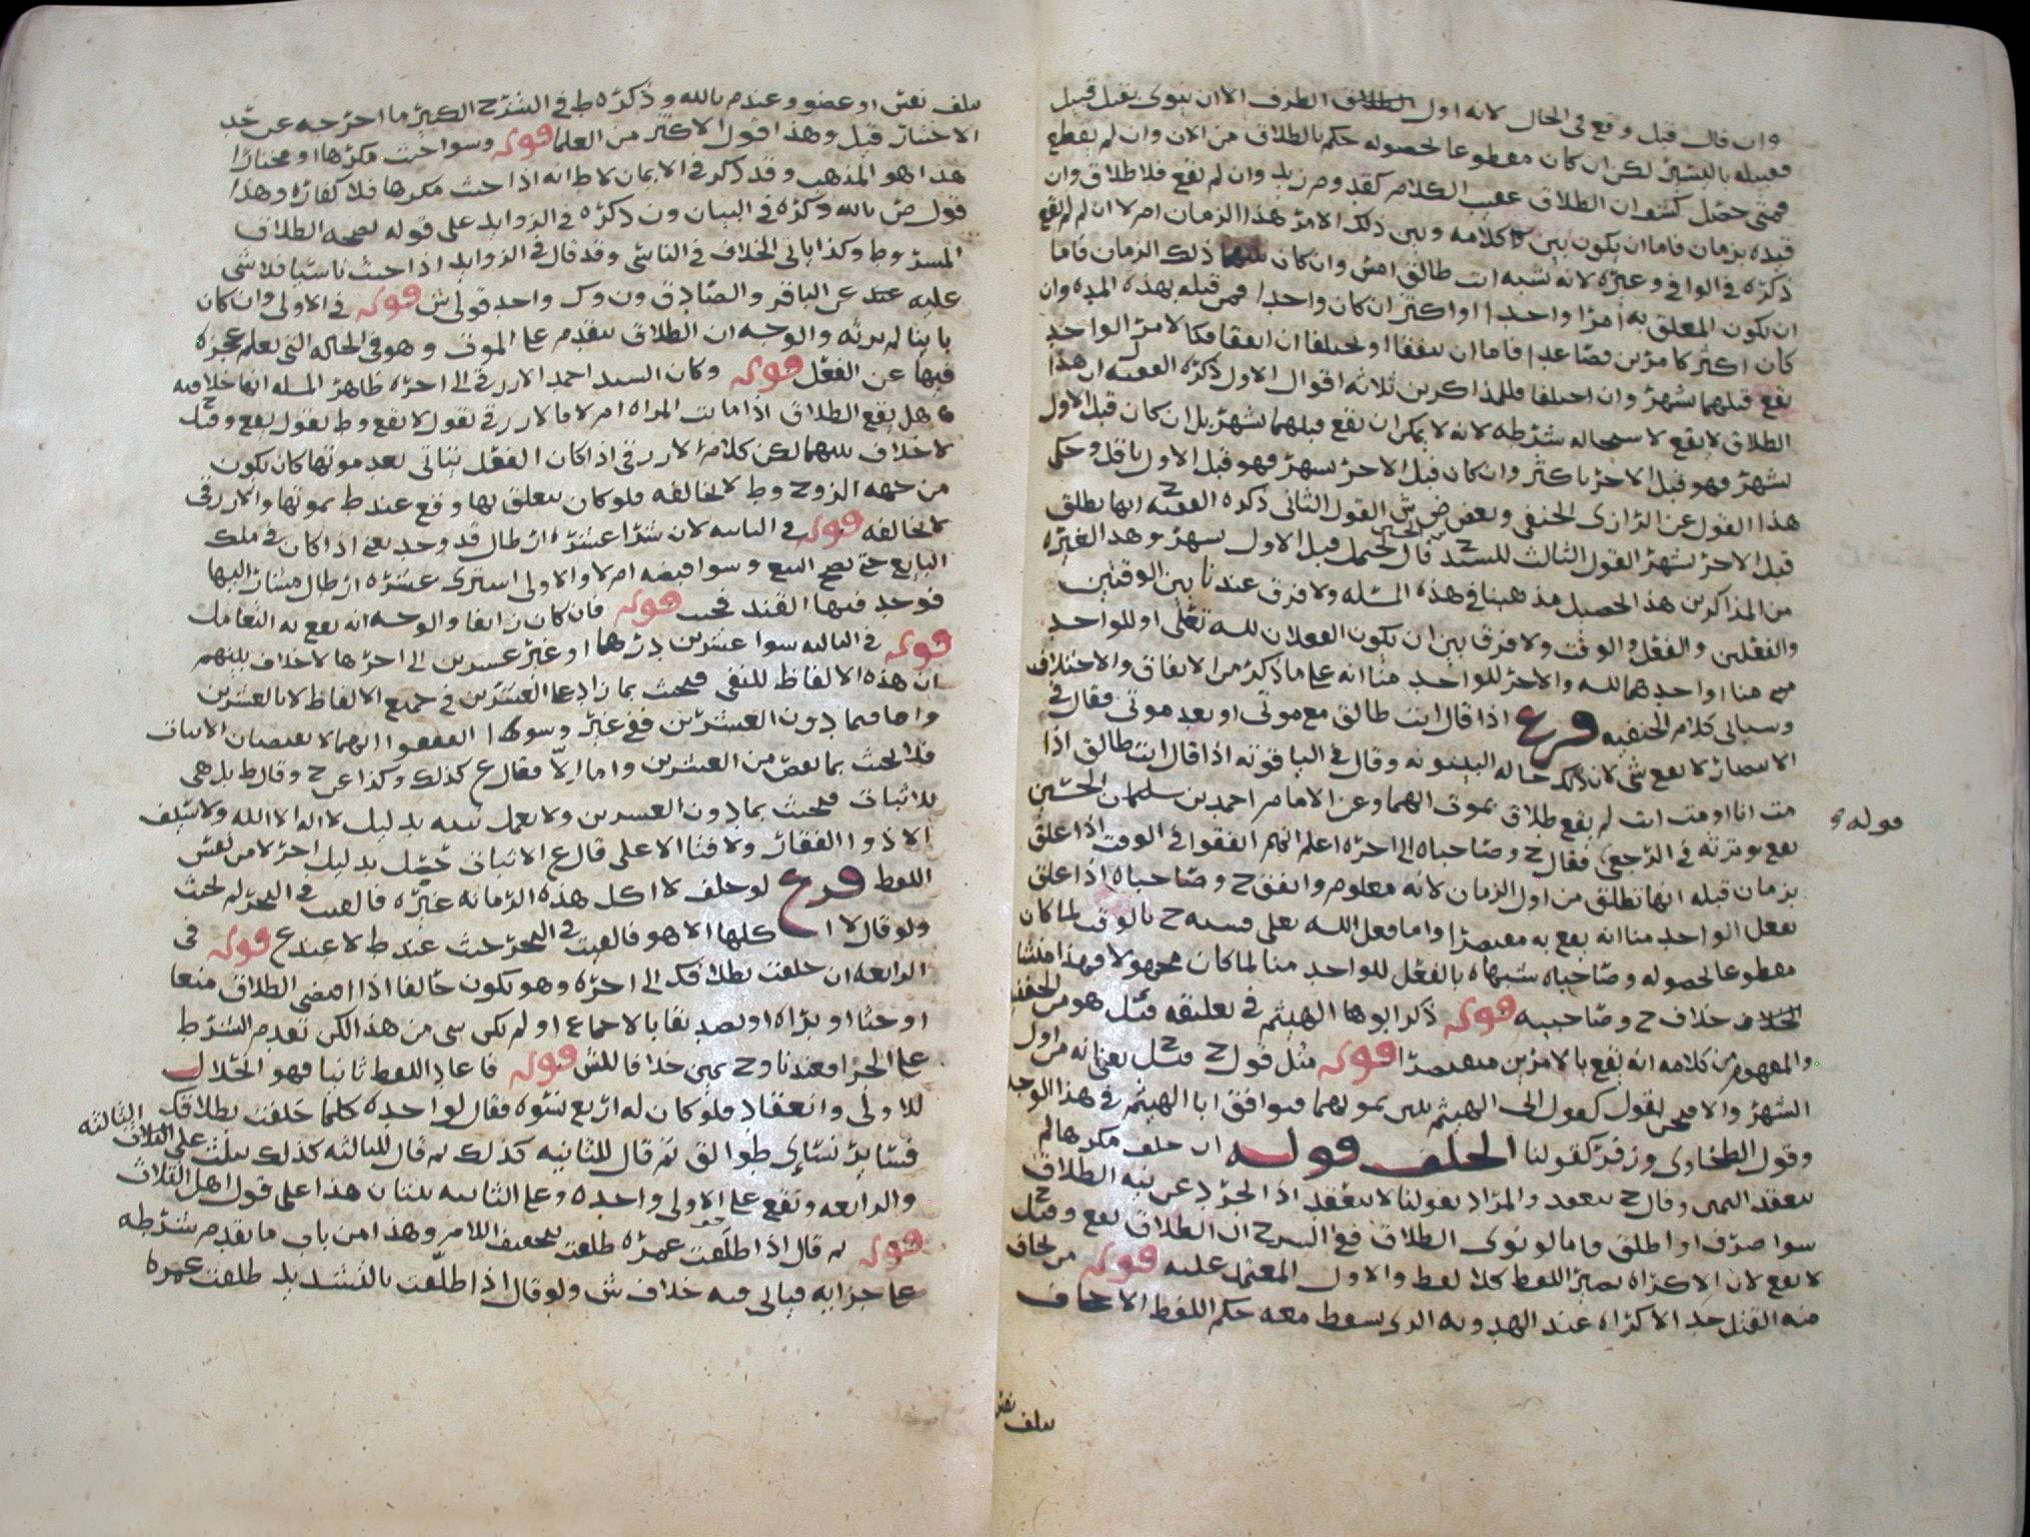 وان قال قبل وقع في الحال لانه اول الطرف الا ان ينوي بقبل قبيل
فقبيله باليسير لكن ان كان مقطوعا لحصوله حكم بالطلاق من الان وان لم يقطع
فمتى حصل كشف ان الطلاق عقيب الكلام كقدوم زيد وان لم يقع فلا طلاق وان
قيده بزمان فاما ان يكون بين كلامه وبين ذلك الامر هذا الزمان ام لا ان لم يقع
ذكره في الوافي وغيره لانه شبه انت طالق امس وان كان بينهما ذلك الزمان فاما
ان يكون المعلق به امرا واحدا او اكثر ان كان واحدا فمن قبله بهذه المده وان
كان اكثر كامرين فصاعدا فاما ان يتفقا او يختلفا ان اتفقا فكالامر الواحد
يقع قبلهما بشهر وان اختلفا فللمذاكرين ثلاثه اقوال الاول ذكره الفقيه ل ان هذا
الطلاق لا يقع لاستحاله شرطه لانه لا يمكن ان يقع قبلهما بشهر بل ان كان قبل الاول
بشهر فهو قبل الاخر باكثر وان كان قبل الاخر بشهر فهو قبل الاول باقل وحكى
هذا القول عن الرازي الحنفي وبعض ش القول الثاني ذكره الفقيه ح انها تطلق
قبل الاخر بشهر القول الثالث للسيد ح قال يحتمل قبل الاول بشهر وهذا لغيره
من المذاكرين هذا تحصيل مذهبنا في هذه المسئله ولا فرق عندنا بين الوقتين
والفعلين والفعل والوقت ولا فرق بين ان يكون الفعلان لله تعالى او للواحد
منا او احدهما لله والاخر للواحد منا انه على ما ذكر من الاتفاق والاختلاف
وسياتي كلام الحنفيه فرع اذا قال انت طالق مع موتي او بعد موتي فقال في
لا يقع شي لان ذلك حاله البينونه وقال في الياقوته اذا قال انت طالق اذا
مت انا او مت انت لم يقع طلاق بموت ايهما وعن الامام احمد بن سليمان الحسين
يقع بوترته في الرجعي فقال ح وصاحباه الى اخره اعلم انهم اتفقوا في الوقت اذا علق
بزمان قبله انها تطلق من اول الزمان لانه معلوم واتفق ح وصاحباه اذا علق
بفعل الواحد منا انه يقع به مقتصرا واما فعل الله تعالى فشبه ح بالوقت لما كان
مقطوعا لحصوله وصاحباه شبهاه بالفعل للواحد منا لما كان مجهولا فهذا منشا
خلاف ح وصاحبيه قوله ذكر ابوها الهيثم في تعليقه قيل هو من الحنفيه
والمفهوم من كلامه انه يقع بالامرين مقتصرا قوله مثل قول ح قيل ح يعني انه من اول
الشهر والا فنحن نقول كقول ابي الهيثم فنوافق ابا الهيثم في هذا الوجه
وقول الطحاوي وزفر كقولنا الحلف قوله ان حلف مكرها لم
تنعقد اليمين وقال ح تنعقد والمراد بقولنا لا تنعقد اذا تجرد عن نيه الطلاق
سوا صرف او اطلق واما لو نوى الطلاق ففي الشرح ان الطلاق يقع وقيل ح
لا يقع لان الاكراه يصير اللفظ كلا لفظ والاول المعتمد عليه قوله من يخاف
منه القتل حد الاكراه عند الهدويه الذي يسقط معه حكم اللفظ الاخاف
تلف نفس
قوله
تلف نفس او عضو وعند م بالله وذكره ط في الشرح الكبير ما اخرجه عن حد
الاختيار قيل وهذا قول الاكثر من العلما قوله وسوا حنث مكرها او مختارا
هذا هو المذهب وقد ذكر في الايمان لاط انه اذا حنث مكرها فلا كفاره وهذا
قول ص بالله وذكره في البيان ون ذكره في الزوايد على قوله يصحه الطلاق
المشروط وكذا ياتي الخلاف في الناسي وقد قال في الزوايد اذا حنث ناسيا فلا شي
عليه عند عن الباقر والصادق ون وك واحد قولي ش قوله في الاولى وان كان
باينا لم يرثه والوجه ان الطلاق يتقدم على الموت وهو في الحاله التي يعلم عجزه
فيها عن الفعل قوله وكان السيد احمد الازرقي الى اخره ظاهر المسله انها خلافيه
هل يقع الطلاق اذا ماتت المراه ام لا فالازرقي يقول لا يقع وط يقول يقع وقيل ح
لا خلاف بينهما لكن كلام الازرقي اذا كان الفعل يتاتى بعد موتها كان يكون
من جهه الزوج وط لا يخالفه فلو كان يتعلق بها وقع عند ط بموتها والازرقي
لا يخالفه قوله في الثانيه لان شرا عشره ارطال قد وجد يعني اذا كان في ملك
البايع حتى يصح البيع وسوا قبضه ام لا والاولى اشترى عشره ارطال مشار اليها
فوجد فيها القند فحنث قوله فان كان زايفا والوجه انه يقع به التعامل
قوله في الثالثه سوا عشرين درهما او غير عشرين الى اخرها لا خلاف بينهم
ان هذه الالفاظ للنفي فيحنث بما زاد على العشرين في جميع الالفاظ لا بالعشرين
واما فيما دون العشرين ففي غير وسوى اتفقوا انهما لا يقتضيان الاثبات
فلا يحنث بما نقص من العشرين واما الا فقال ع كذلك وكذا عن ح وقال ط بل هي
للاثبات فيحنث بما دون العشرين ولا تعمل نيته بدليل لا اله الا الله ولا سيف
الا ذو الفقار ولا فتى الا علي قال ع الاثبات حصل بدليل اخر لا من نفس
اللفظ فرع لو حلف لا اكل هذه الرمانه غيره فالعبث في البحر لم يحنث
ولو قال لا ا كلها الا هو فالعبث في البحر حنث عند ط لا عند ع قوله في
الرابعه ان حلفت بطلاقك الى اخره وهو يكون حالفا اذا اقتضى الطلاق منعا
او حثا او براه او تصديقا بالاجماع او لم يكن شي من هذا لكن تقدم الشرط
على الجزا فعندنا وح يمين خلافا للش قوله فاعاد اللفظ ثانيا فهو انحلال
للاولى وانعقاد فلو كان له اربع نسوه فقال لواحده كلما حلفت بطلاقك
فسائر نسائي طوالق ثم قال للثانيه كذلك ثم قال للثالثه كذلك على الثالثه
والرابعه وتقع على الاولى واحده وعلى الثانيه ثنتان هذا على قول اهل الثلاث
قوله ثم قال اذا طلقت عمره طلقت بتخفيف اللام وهذا من باب ما تقدم شرطه
على جزايه فياتي فيه خلاف ش ولو قال اذا طلقت بالتشديد طلقت عمره